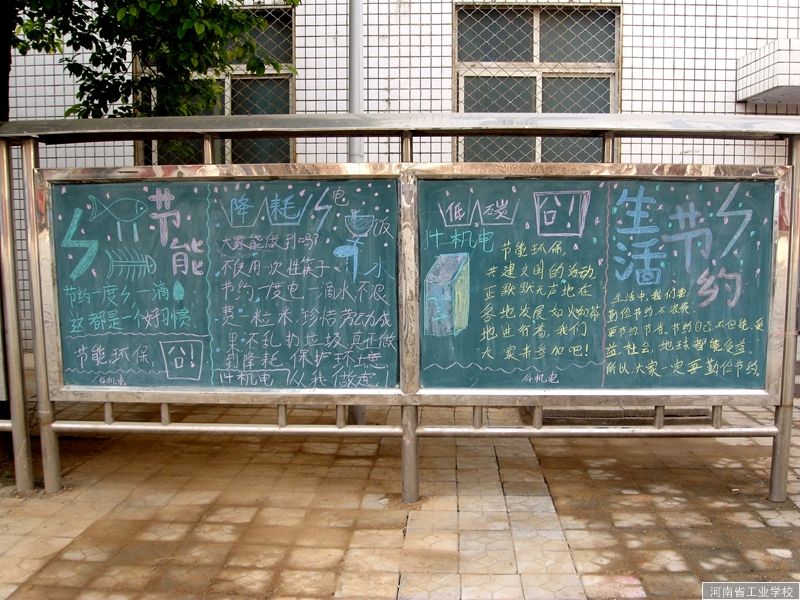 节能
节约一度一滴
这都是一个好习惯
节能环保,
公!
14机电
降耗
电
饭
水
大家能做到吗?
不使用一次性筷子
节约一度电一滴水不浪
费一粒米,珍惜劳动成
果不乱扔垃圾真正做
到降耗,保护环境
14机电
从我做起
低碳
公!
14机电
节能环保,
共建文明的活动
正默默无声地在
各地发展如火如荼
地进行着,我们
大家来参加吧!
14机电
生活
节约
生活中,我们要
勤俭节约不浪费.
要节约,节省,节约自己,不但能受
益,社会,地球都能受益.
所以,大家一定要勤俭节约.
河南省工业学校